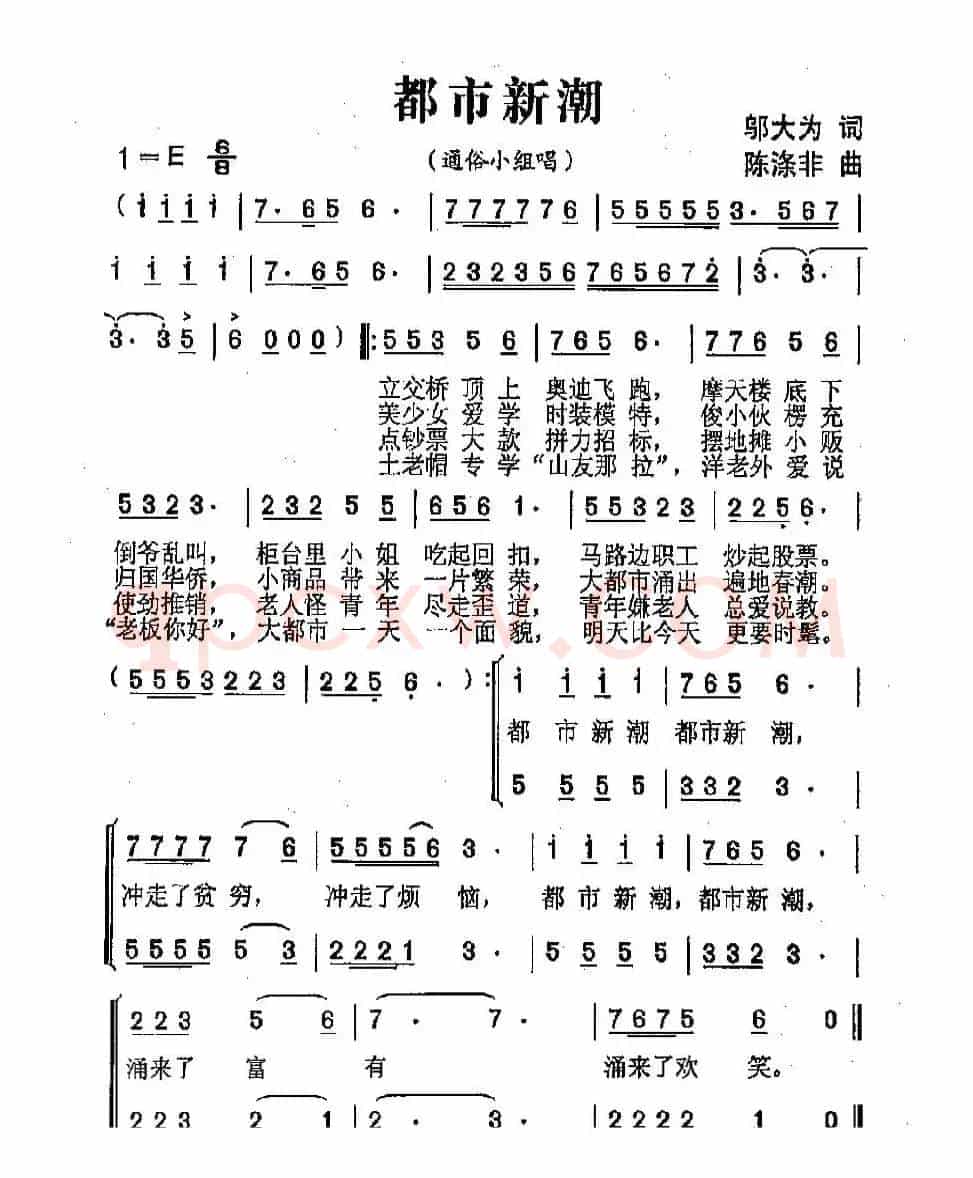 都市新潮
邬大为 词
1=E 6/8 （通俗小组唱） 陈涤非 曲
( i i i i | 7. 65 6. | 777776 | 555555 3. 567 |
i i i i | 7. 65 6. | 232356765672 | 3. 3. |
3. 3 5 | 6 0 00 ) |: 553 5 6 | 765 6. | 776 5 6 |
立交桥 顶 上 奥迪飞 跑， 摩天楼 底 下
美少女 爱 学 时装模 特， 俊小伙 楞 充
点钞票 大 款 拼力招 标， 摆地摊 小 贩
土老帽 专 学 “山友那 拉”， 洋老外 爱 说
5323. | 232 5 5 | 656 1. | 55323 | 2256. |
倒爷乱叫， 柜台里 小 姐 吃起回 扣， 马路边职工 炒起股票。
归国华侨， 小商品 带 来 一片繁 荣， 大都市涌出 遍地春潮。
使劲推销， 老人怪 青 年 尽走歪 道， 青年嫌老人 总爱说教。
“老板你好”， 大都市 一 天 一个面 貌， 明天比今天 更要时髦。
( 5553223 | 225 6. ) :| i i i i | 765 6. |
都 市 新 潮 都市新 潮，
5 5 5 5 | 332 3. |
7777 7 6 | 555556 3. | i i i i | 765 6. |
冲走了贫 穷， 冲走了烦 恼， 都 市 新 潮， 都市新 潮，
5555 5 3 | 2221 3. | 5 5 5 5 | 332 3. |
223 5 6 | 7. 7. | 7675 6 0 ||
涌来了 富 有 涌来了欢 笑。
223 2 1 | 2. 3. | 2222 1 0 ||
qpcxw.com